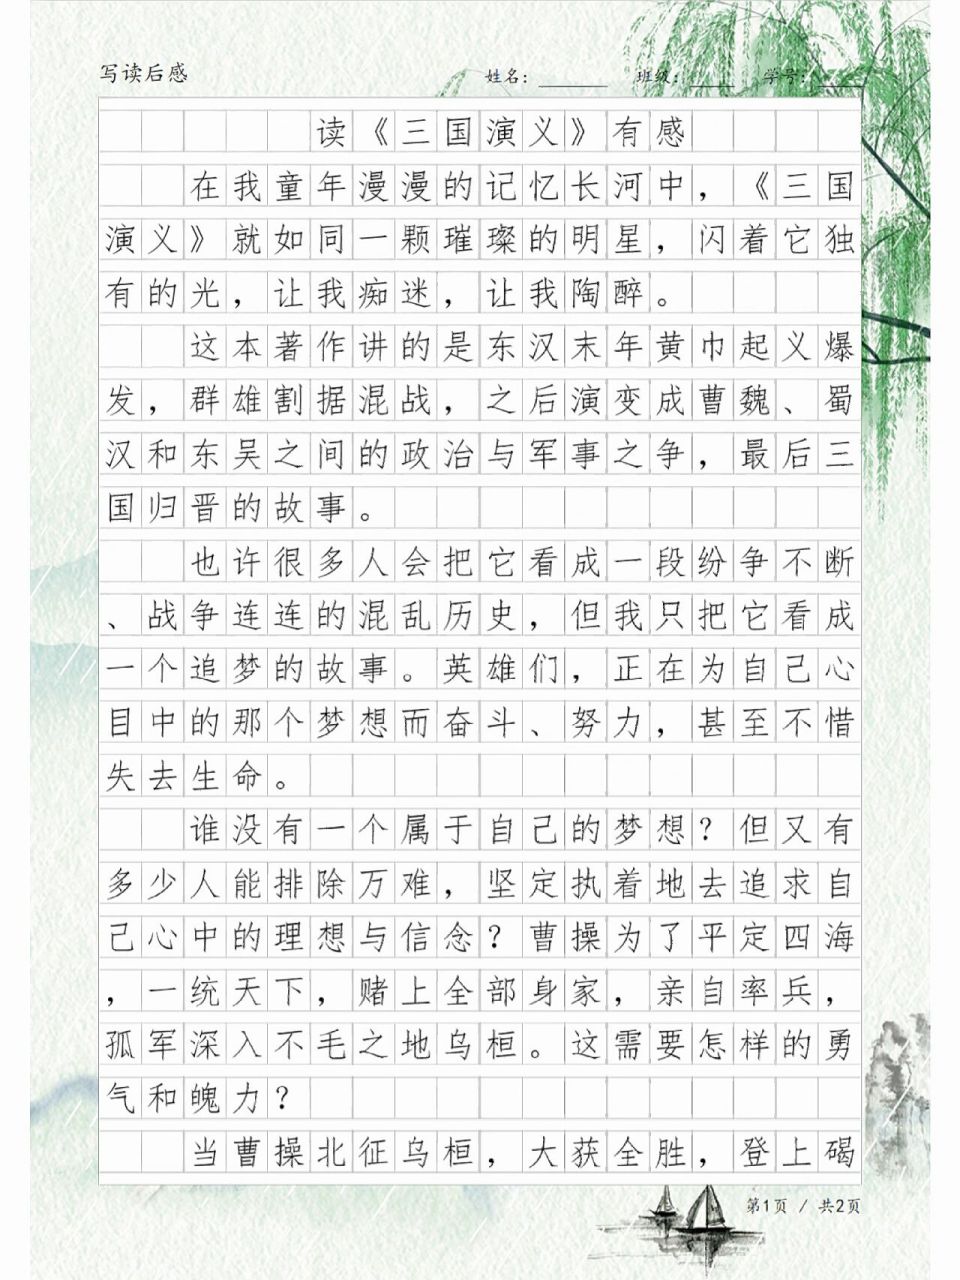 写读后感 姓名: 班级: 学号:
读《三国演义》有感
在我童年漫漫的记忆长河中，《三国
演义》就如同一颗璀璨的明星，闪着它独
有的光，让我痴迷，让我陶醉。
这本著作讲的是东汉末年黄巾起义爆
发，群雄割据混战，之后演变成曹魏、蜀
汉和东吴之间的政治与军事之争，最后三
国归晋的故事。
也许很多人会把它看成一段纷争不断
、战争连连的混乱历史，但我只把它看成
一个追梦的故事。英雄们，正在为自己心
目中的那个梦想而奋斗、努力，甚至不惜
失去生命。
谁没有一个属于自己的梦想？但又有
多少人能排除万难，坚定执着地去追求自
己心中的理想与信念？曹操为了平定四海
，一统天下，赌上全部身家，亲自率兵，
孤军深入不毛之地乌桓。这需要怎样的勇
气和魄力？
当曹操北征乌桓，大获全胜，登上碣
第1页 / 共2页